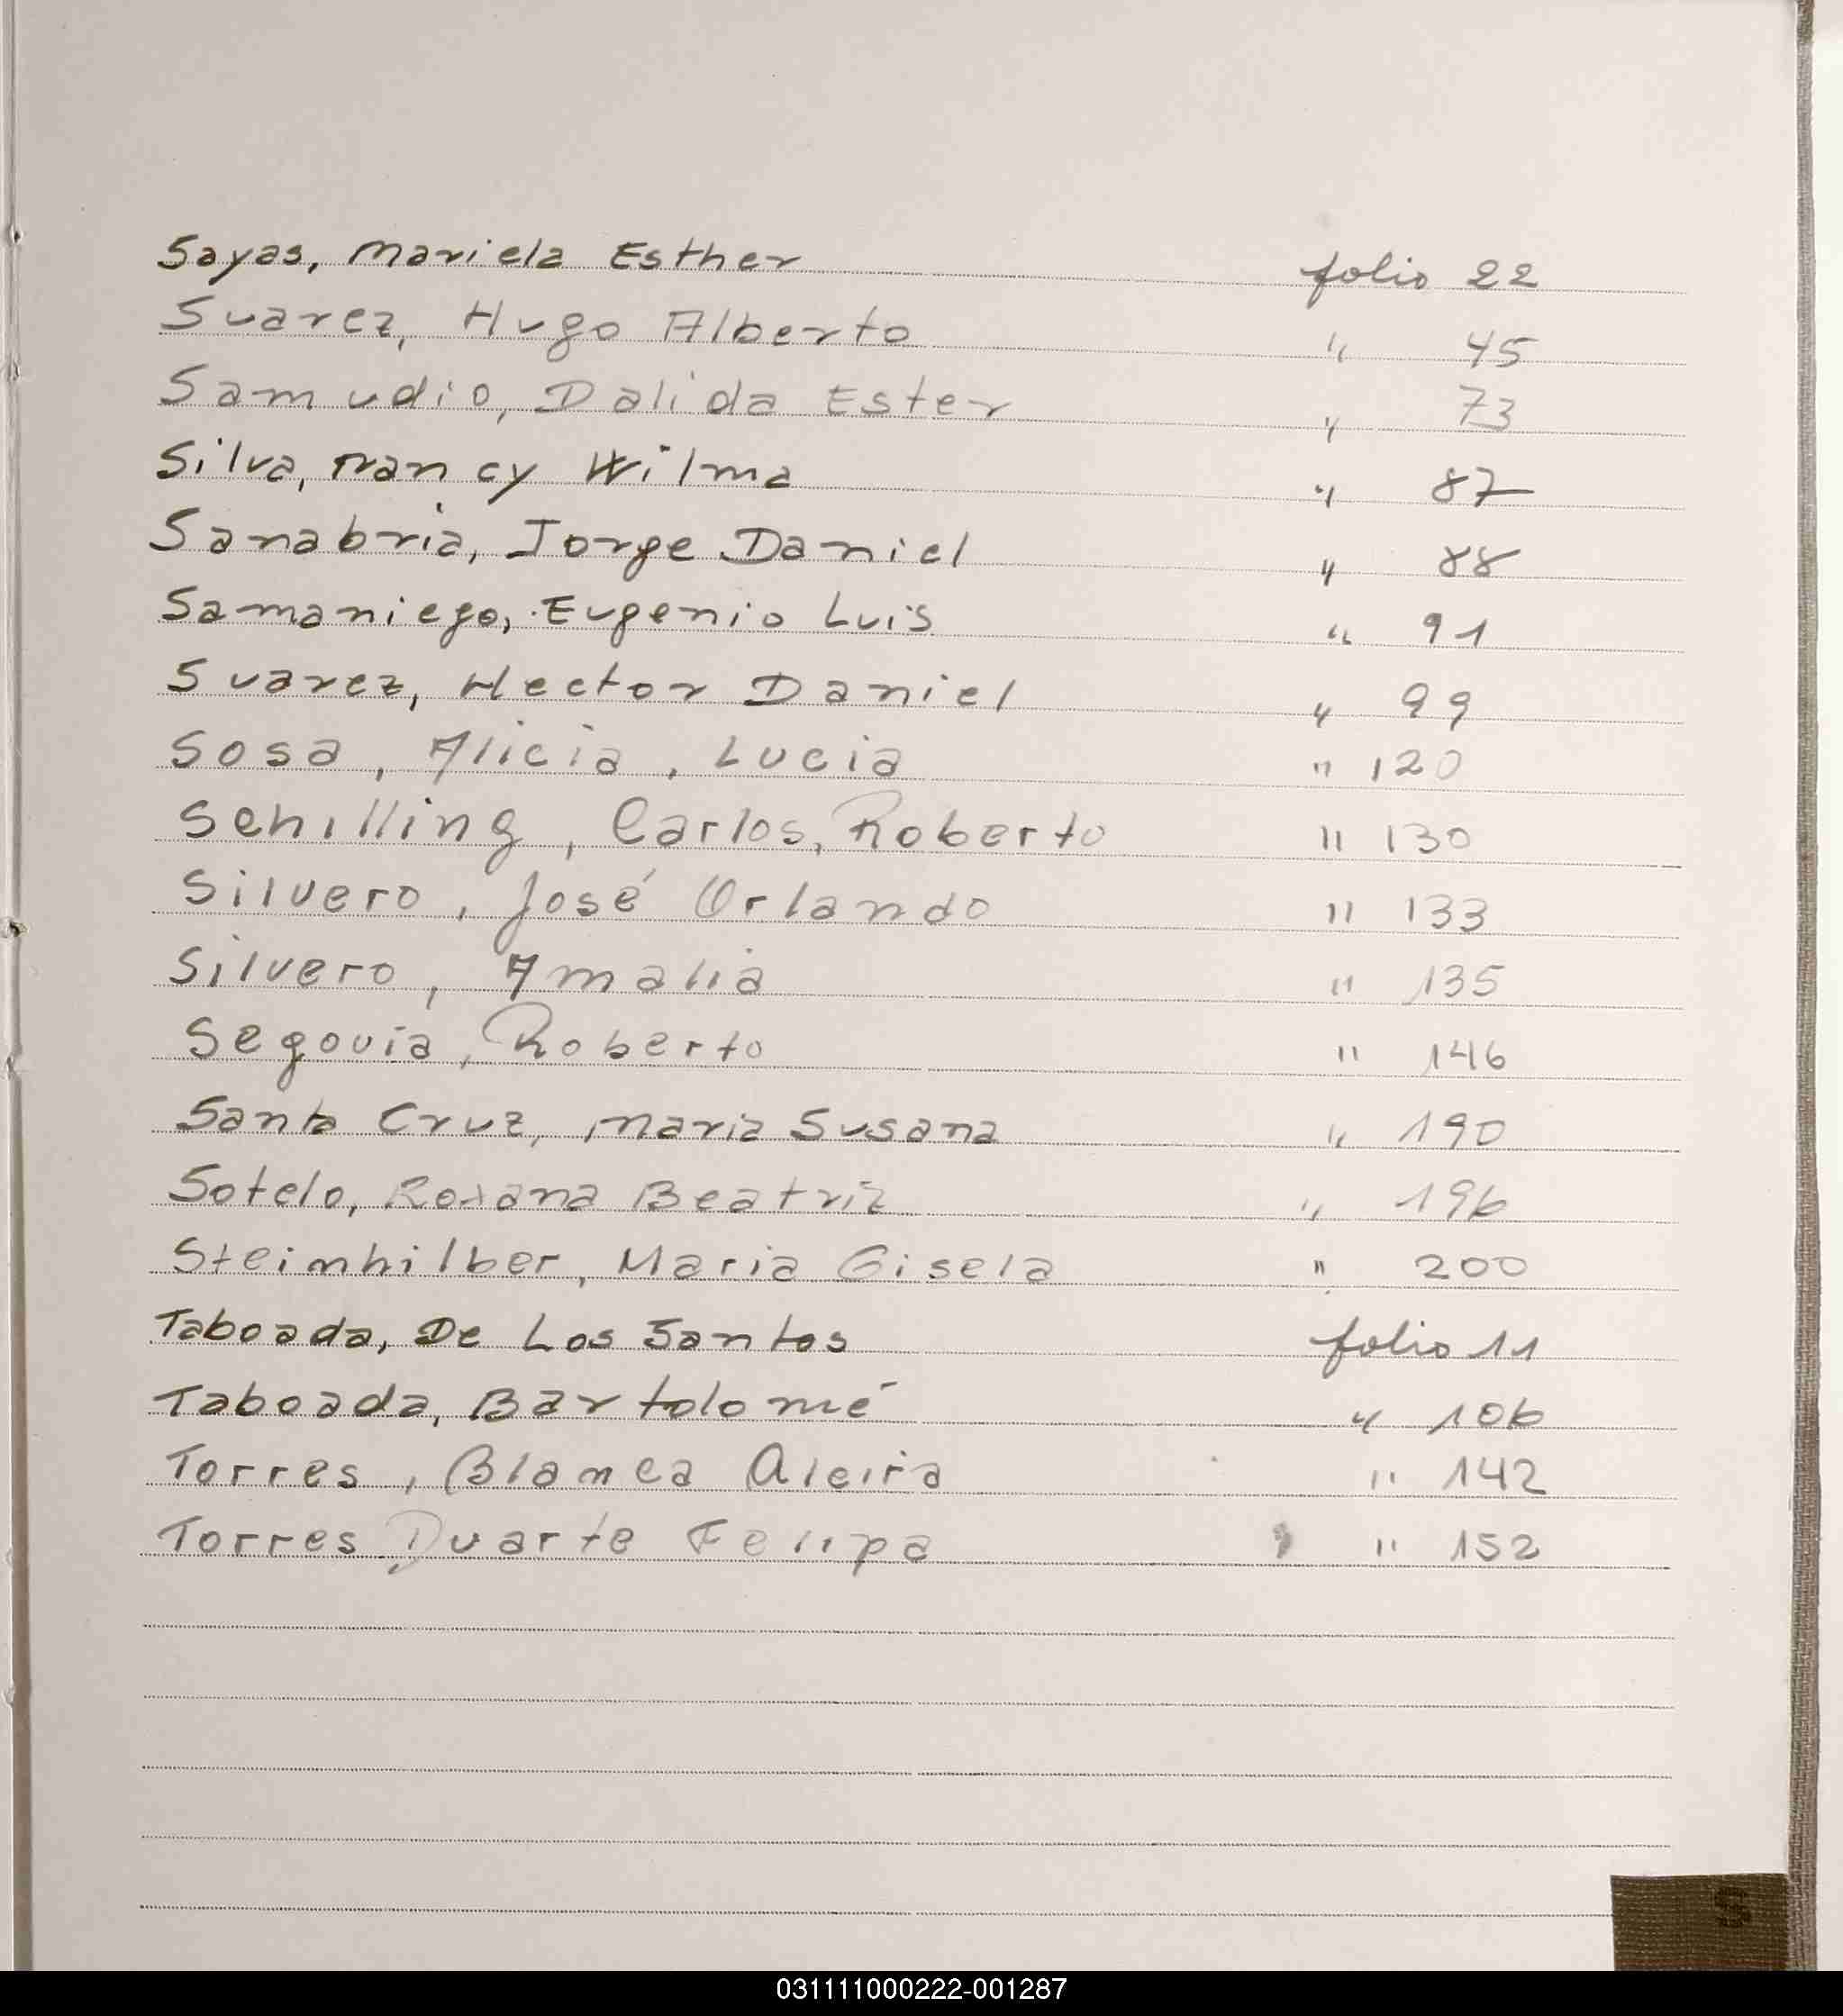 Sayas, Mariela Esther folio 22
Suarez, Hugo Alberto " 45
Samudio, Dalida Ester " 73
Silva, Nancy Wilma " 87
Sanabria, Jorge Daniel " 88
Samaniego, Eugenio Luis " 91
Suarez, Hector Daniel " 99
Sosa, Alicia, Lucia " 120
Schilling, Carlos, Roberto " 130
Silvero, José Orlando " 133
Silvero, Amalia " 135
Segovia, Roberto " 146
Santa Cruz, Maria Susana " 190
Sotelo, Roxana Beatriz " 196
Steimhilber, Maria Gisela " 200
Taboada, De Los Santos folio 11
Taboada, Bartolomé " 106
Torres, Blanca Alcira " 142
Torres Duarte Felipa " 152
S
031111000222-001287